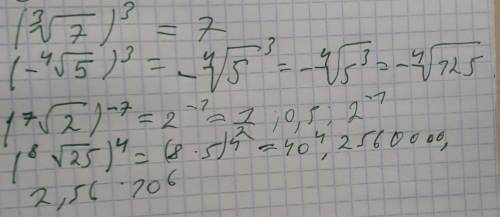 (³√7)³ = 7
(-⁴√5)³ = -⁴√5³ = -⁴√5³ = -⁴√125
(⁷√2)⁻⁷ = 2⁻¹ = 1/2; 0,5; 2⁻¹
(⁸√25)⁴ = (8·5)⁴ = 40⁴, 2560000,
2,56·10⁶